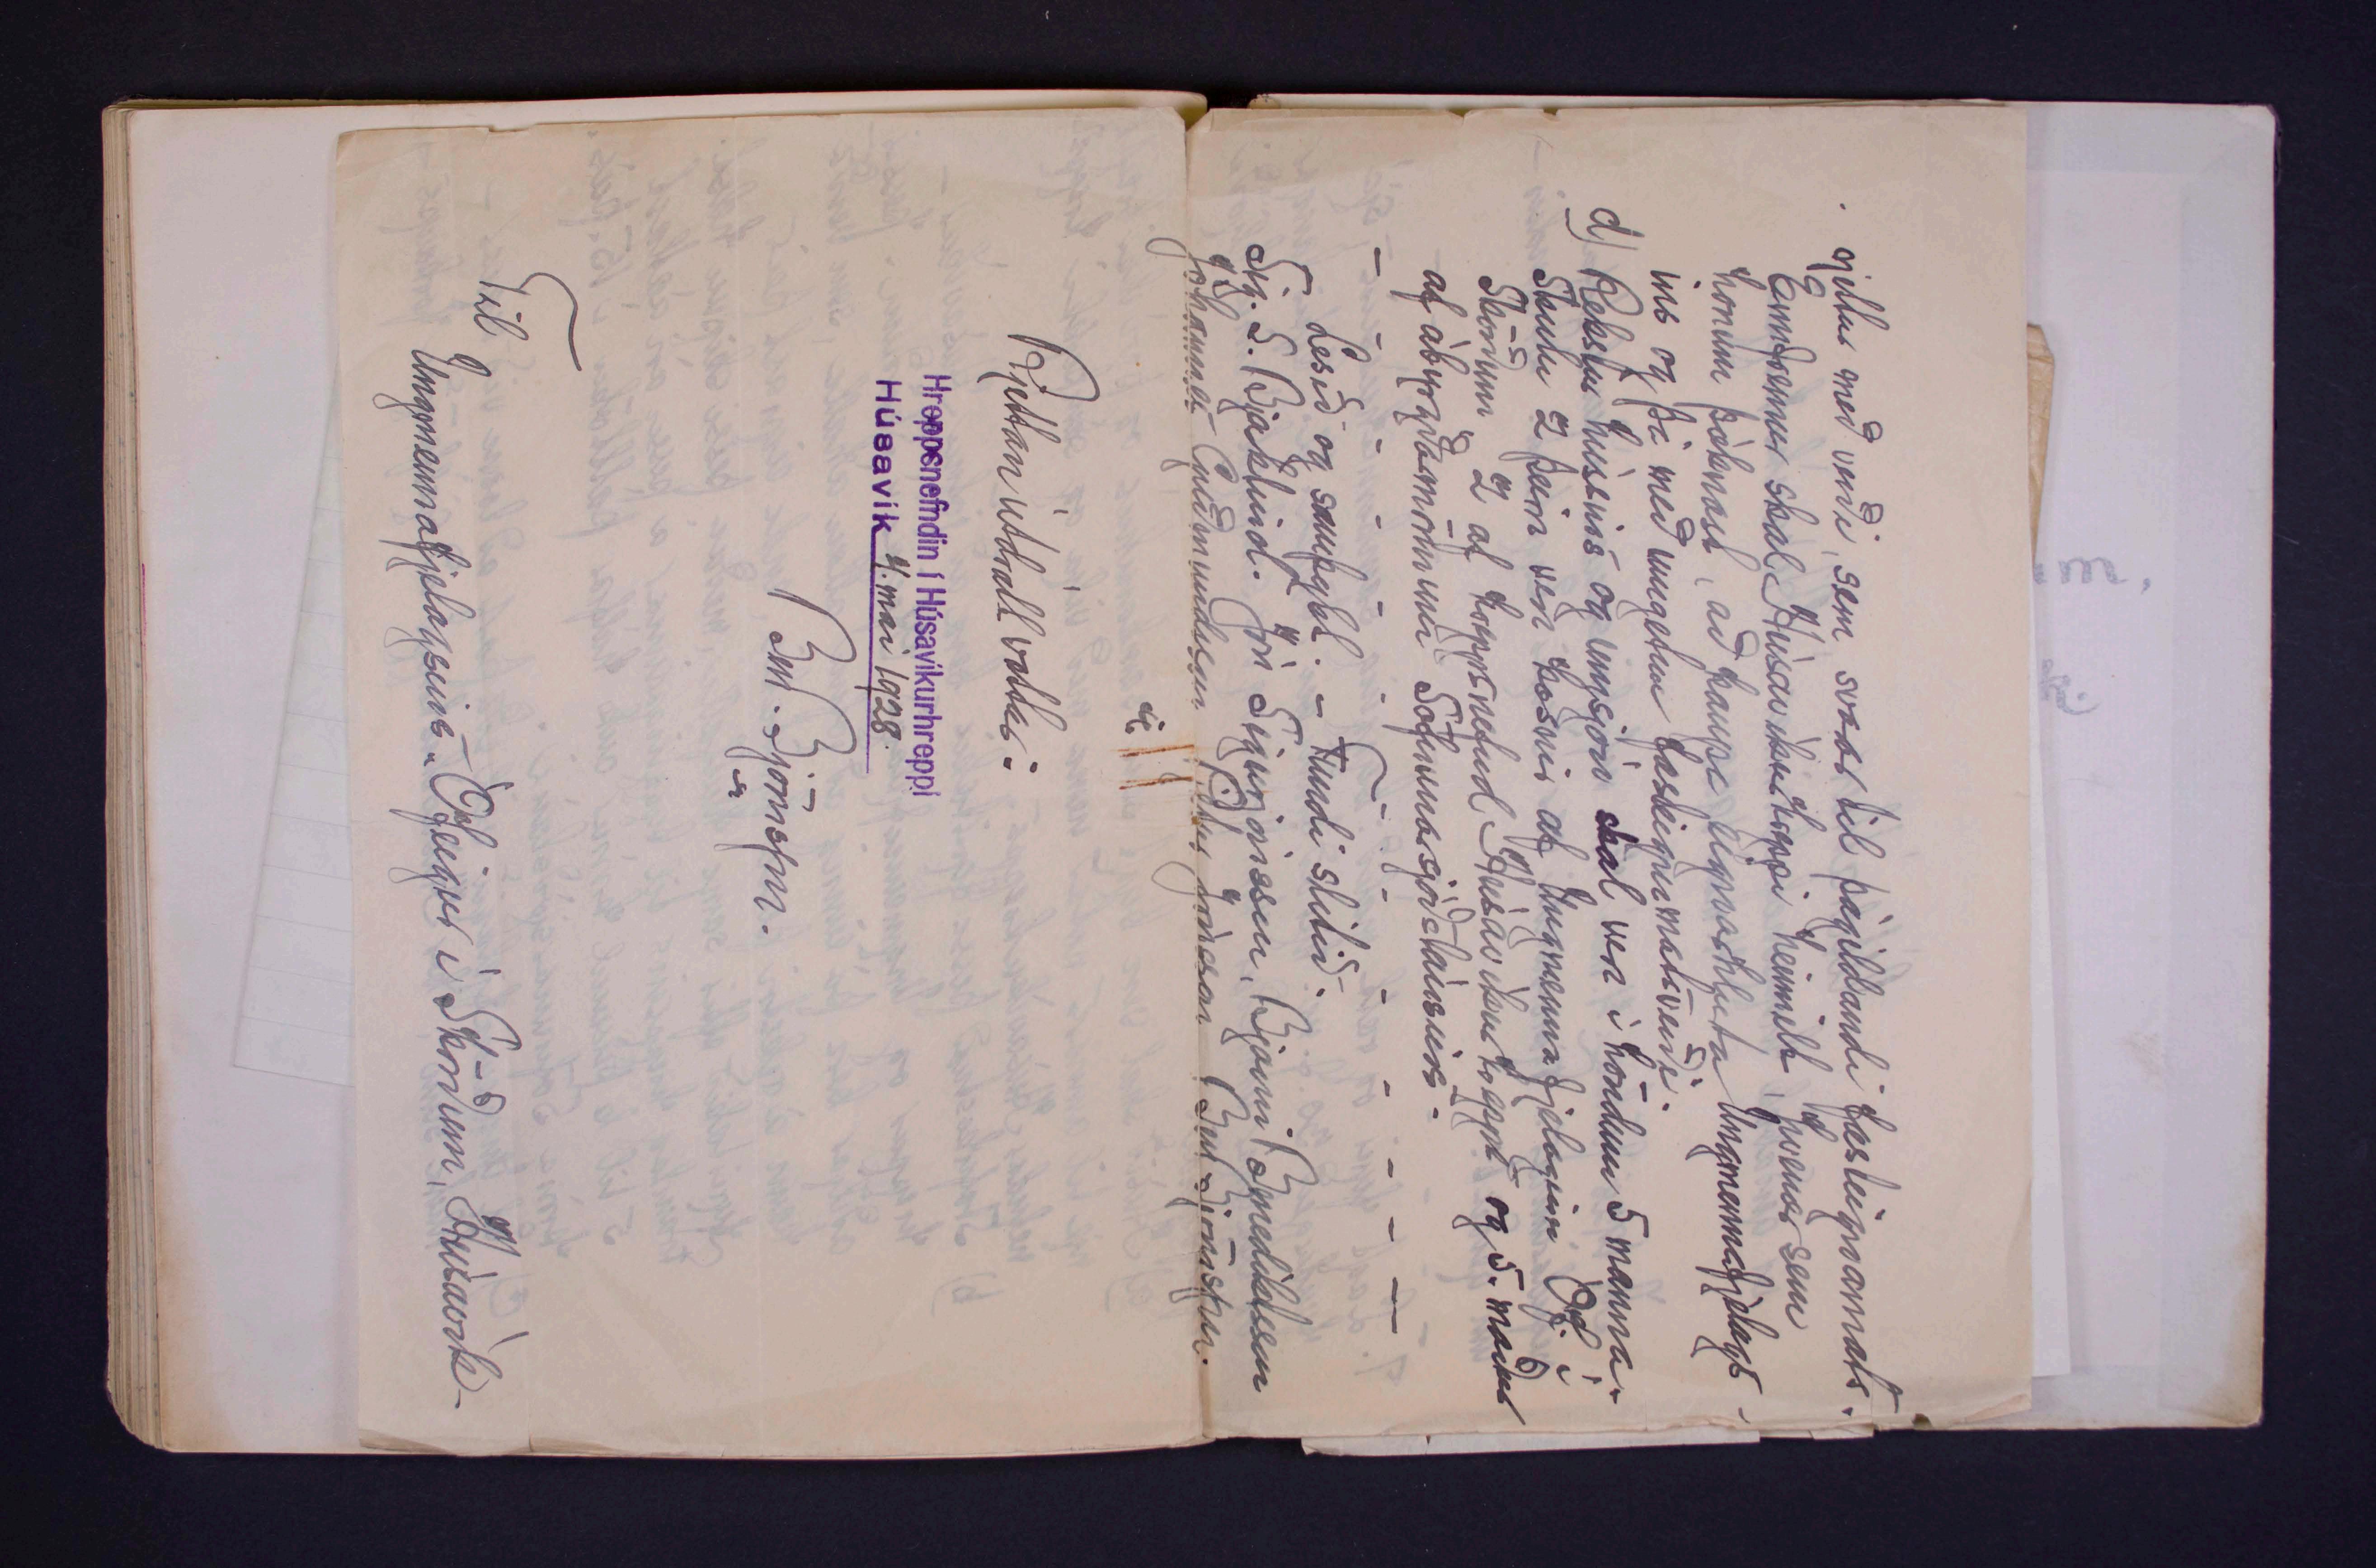 gildu með verði, sem svarar til þágildandi fasteignamats.
Ennfremur skal Húsavíkurhreppi heimilt, hvenær sem
honum þóknast, að kaupa eignarhluta Ungmennafjelags-
ins og þá með nugetnu fasteignamatsverði.
d) Rekstur hússins og umsjón skal vera í höndum 5 manna.
Skulu 2 þeir vera kosnir af Ungmennafjelaginu Óf. í
Skörðum 2 af hreppsnefnd Húsavíkurhrepps og 5. maður
af ábyrgðarmönnum Söfnunarsjóðsláusins.
Lesið og samþykt. - Fundi slitið.
Sig. S. Bjarklind. Jón Sigurjónsson, Bjarni Benediktsson
Jóhannes Guðmundsson Páll Jónsson Ben Björnsson.
Rjettan útdrátt vottar:
Hreppsnefndin í Húsavíkurhreppi
Húsavík 4. maí 1928.
Ben. Björnsson.
Til
Ungmennafjelagsins "Ófeigur í Skörðum", Húsavík